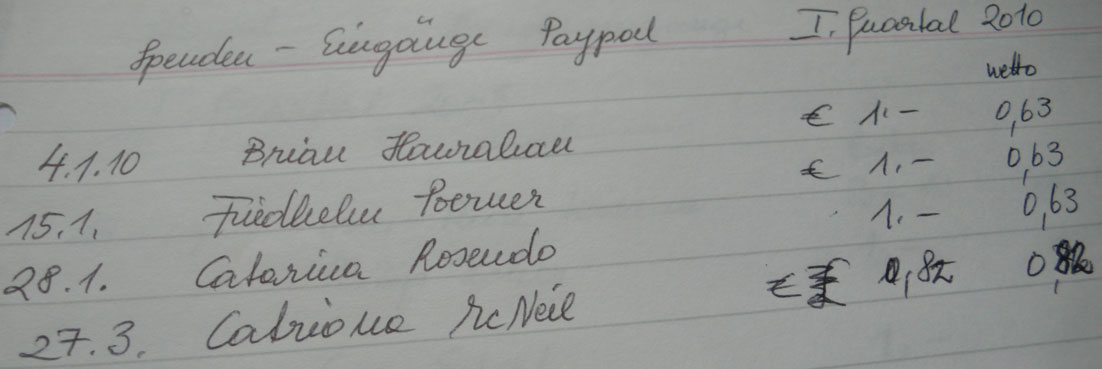 Spenden - Eingänge Paypal I. Quartal 2010
netto
4.1.10 Brian Hanrahan € 1.- 0,63
15.1. Friedhelm Poerner € 1.- 0,63
28.1. Catarina Rosendo 1.- 0,63
27.3. Catriona McNeil € 0,82 0,82